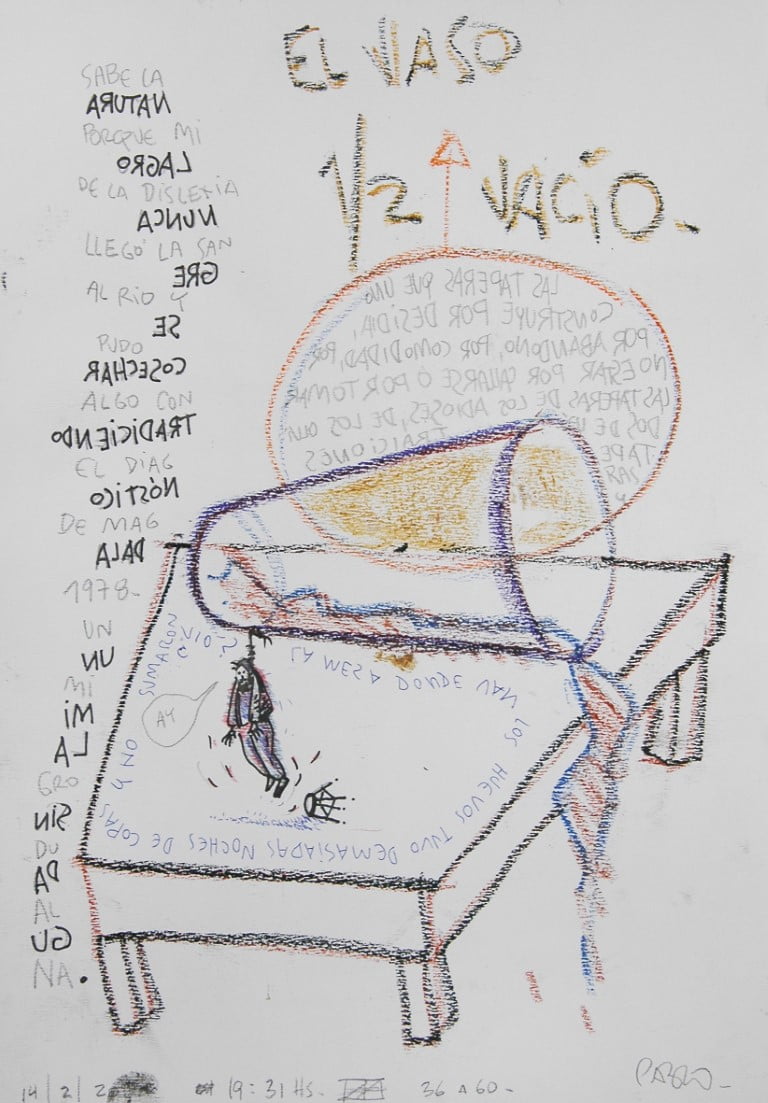 EL VASO
1/2 VACÍO.-
SABE LA
NATURA
PORQUE MI
LAGRO
DE LA DISLEXIA
NUNCA
LLEGÓ LA SAN
GRE
AL RÍO Y
SE
PUDO
COSECHAR
ALGO CON
TRADICIENDO
EL DIAG
NÓSTICO
DE MAG
DALA
1978-
UN
UN
MI
MI
LA
GRO
SIN
DU
DA
AL
GU
NA.
LAS TAPERAS QUE UNO
CONSTRUYE POR DESIDIA,
POR ABANDONO, POR COMODIDAD, POR
NO ESTAR POR CALLARSE O POR TOMAR
LAS TAPERAS DE LOS ADIOSES, DE LOS QUE
DOS DE
TRAICIONES
TAPE
RAS
Y
LA MESA DONDE MAU
LOS HUEVOS TUVO DEMASIADAS NOCHES DE COPAS Y NO
SUMARCON
AY
14/2/2 19:31 HS. 36 A 60-
PABLO-